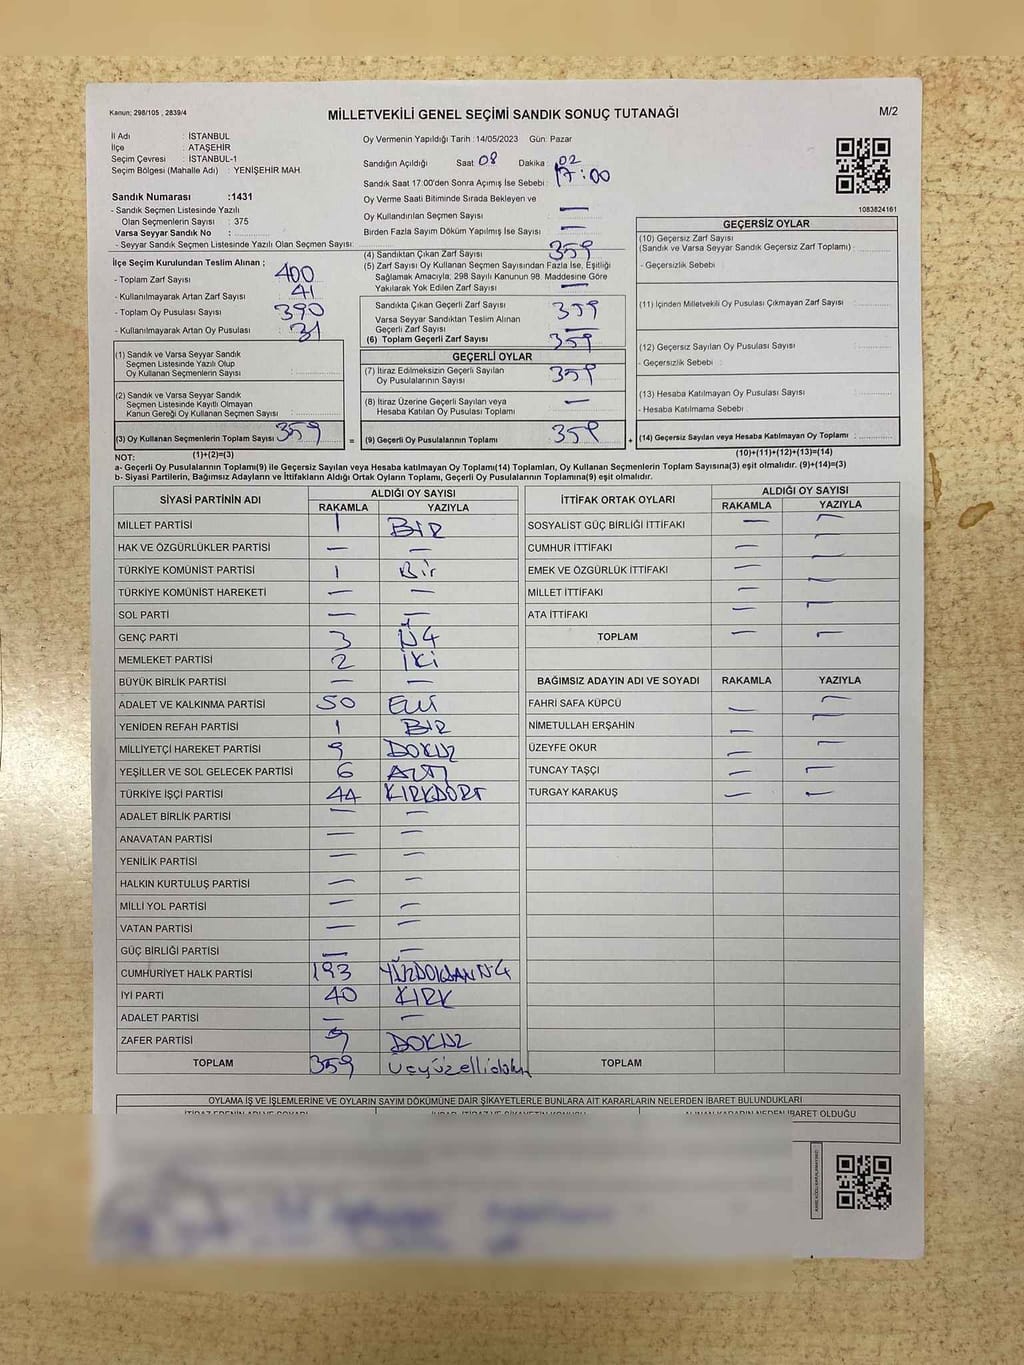 Kanun; 298/105 ; 2839/4
MİLLETVEKİLİ GENEL SEÇİMİ SANDIK SONUÇ TUTANAĞI
M/2
İl Adı : İSTANBUL
İlçe : ATAŞEHİR
Seçim Çevresi : İSTANBUL-1
Seçim Bölgesi (Mahalle Adı) : YENİŞEHİR MAH.
Sandık Numarası :1431
- Sandık Seçmen Listesinde Yazılı
Olan Seçmenlerin Sayısı : 375
Varsa Seyyar Sandık No :
- Seyyar Sandık Seçmen Listesinde Yazılı Olan Seçmen Sayısı:
İlçe Seçim Kurulundan Teslim Alınan ;
- Toplam Zarf Sayısı : 400
- Kullanılmayarak Artan Zarf Sayısı : 41
- Toplam Oy Pusulası Sayısı : 390
- Kullanılmayarak Artan Oy Pusulası : 31
(1) Sandık ve Varsa Seyyar Sandık
Seçmen Listesinde Yazılı Olup
Oy Kullanan Seçmenlerin Sayısı :
(2) Sandık ve Varsa Seyyar Sandık
Seçmen Listesinde Kayıtlı Olmayan
Kanun Gereği Oy Kullanan Seçmen Sayısı :
(3) Oy Kullanan Seçmenlerin Toplam Sayısı : 359
Oy Vermenin Yapıldığı Tarih : 14/05/2023 Gün: Pazar
Sandığın Açıldığı Saat : 08 Dakika : 02
Sandık Saat 17:00'den Sonra Açımış İse Sebebi : 17:00
Oy Verme Saati Bitiminde Sırada Bekleyen ve
Oy Kullandırılan Seçmen Sayısı : —
Birden Fazla Sayım Döküm Yapılmış İse Sayısı : —
(4) Sandıktan Çıkan Zarf Sayısı : 359
(5) Zarf Sayısı Oy Kullanan Seçmen Sayısından Fazla İse, Eşitliği
Sağlamak Amacıyla, 298 Sayılı Kanunun 98. Maddesine Göre
Yakılarak Yok Edilen Zarf Sayısı : —
Sandıkta Çıkan Geçerli Zarf Sayısı : 359
Varsa Seyyar Sandıktan Teslim Alınan
Geçerli Zarf Sayısı : —
(6) Toplam Geçerli Zarf Sayısı : 359
GEÇERLİ OYLAR
(7) İtiraz Edilmeksizin Geçerli Sayılan
Oy Pusulalarının Sayısı : 359
(8) İtiraz Üzerine Geçerli Sayılan veya
Hesaba Katılan Oy Pusulası Toplamı : —
= (9) Geçerli Oy Pusulalarının Toplamı : 359 +
1083824161
GEÇERSİZ OYLAR
(10) Geçersiz Zarf Sayısı
(Sandık ve Varsa Seyyar Sandık Geçersiz Zarf Toplamı) :
- Geçersizlik Sebebi :
(11) İçinden Milletvekili Oy Pusulası Çıkmayan Zarf Sayısı :
(12) Geçersiz Sayılan Oy Pusulası Sayısı :
- Geçersizlik Sebebi :
(13) Hesaba Katılmayan Oy Pusulası Sayısı :
- Hesaba Katılmama Sebebi :
(14) Geçersiz Sayılan veya Hesaba Katılmayan Oy Toplamı :
NOT: (1)+(2)=(3) (10)+(11)+(12)+(13)=(14)
a- Geçerli Oy Pusulalarının Toplamı(9) ile Geçersiz Sayılan veya Hesaba katılmayan Oy Toplamı(14) Toplamları, Oy Kullanan Seçmenlerin Toplam Sayısına(3) eşit olmalıdır. (9)+(14)=(3)
b- Siyasi Partilerin, Bağımsız Adayların ve İttifakların Aldığı Ortak Oyların Toplamı, Geçerli Oy Pusulalarının Toplamına(9) eşit olmalıdır.
SİYASİ PARTİNİN ADI ALDIĞI OY SAYISI
RAKAMLA YAZIYLA
MİLLET PARTİSİ 1 BİR
HAK VE ÖZGÜRLÜKLER PARTİSİ — —
TÜRKİYE KOMÜNİST PARTİSİ 1 Bir
TÜRKİYE KOMÜNİST HAREKETİ — —
SOL PARTİ — —
GENÇ PARTİ 3
MEMLEKET PARTİSİ 2 İKİ
BÜYÜK BİRLİK PARTİSİ — —
ADALET VE KALKINMA PARTİSİ 50 Elli
YENİDEN REFAH PARTİSİ 1 BİR
MİLLİYETÇİ HAREKET PARTİSİ 9 DOKUZ
YEŞİLLER VE SOL GELECEK PARTİSİ 6 ALTI
TÜRKİYE İŞÇİ PARTİSİ 44 KIRKDÖRT
ADALET BİRLİK PARTİSİ — —
ANAVATAN PARTİSİ — —
YENİLİK PARTİSİ — —
HALKIN KURTULUŞ PARTİSİ — —
MİLLİ YOL PARTİSİ — —
VATAN PARTİSİ — —
GÜÇ BİRLİĞİ PARTİSİ — —
CUMHURİYET HALK PARTİSİ 193
İYİ PARTİ 40 KIRK
ADALET PARTİSİ — —
ZAFER PARTİSİ 9 DOKUZ
TOPLAM 359 Üçyüzellidokuz
İTTİFAK ORTAK OYLARI ALDIĞI OY SAYISI
RAKAMLA YAZIYLA
SOSYALİST GÜÇ BİRLİĞİ İTTİFAKI — —
CUMHUR İTTİFAKI — —
EMEK VE ÖZGÜRLÜK İTTİFAKI — —
MİLLET İTTİFAKI — —
ATA İTTİFAKI — —
TOPLAM — —
BAĞIMSIZ ADAYIN ADI VE SOYADI RAKAMLA YAZIYLA
FAHRİ SAFA KÜPCÜ — —
NİMETULLAH ERŞAHİN — —
ÜZEYFE OKUR — —
TUNCAY TAŞÇI — —
TURGAY KARAKUŞ — —
TOPLAM
OYLAMA İŞ VE İŞLEMLERİNE VE OYLARIN SAYIM DÖKÜMÜNE DAİR ŞİKAYETLERLE BUNLARA AİT KARARLARIN NELERDEN İBARET BULUNDUKLARI
İTİRAZ EDENİN ADI VE SOYADI İHBAR, İTİRAZ VE ŞİKAYETİN KONUSU ALINAN KARARIN NEDEN İBARET OLDUĞU